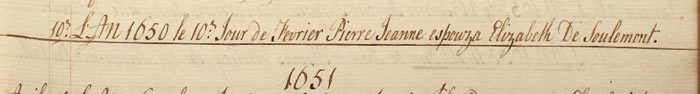 10.e L'An 1650 le 10.e Jour de Fevrier Pierre Jeanne espouza Elizabeth De Soulemont.
1651